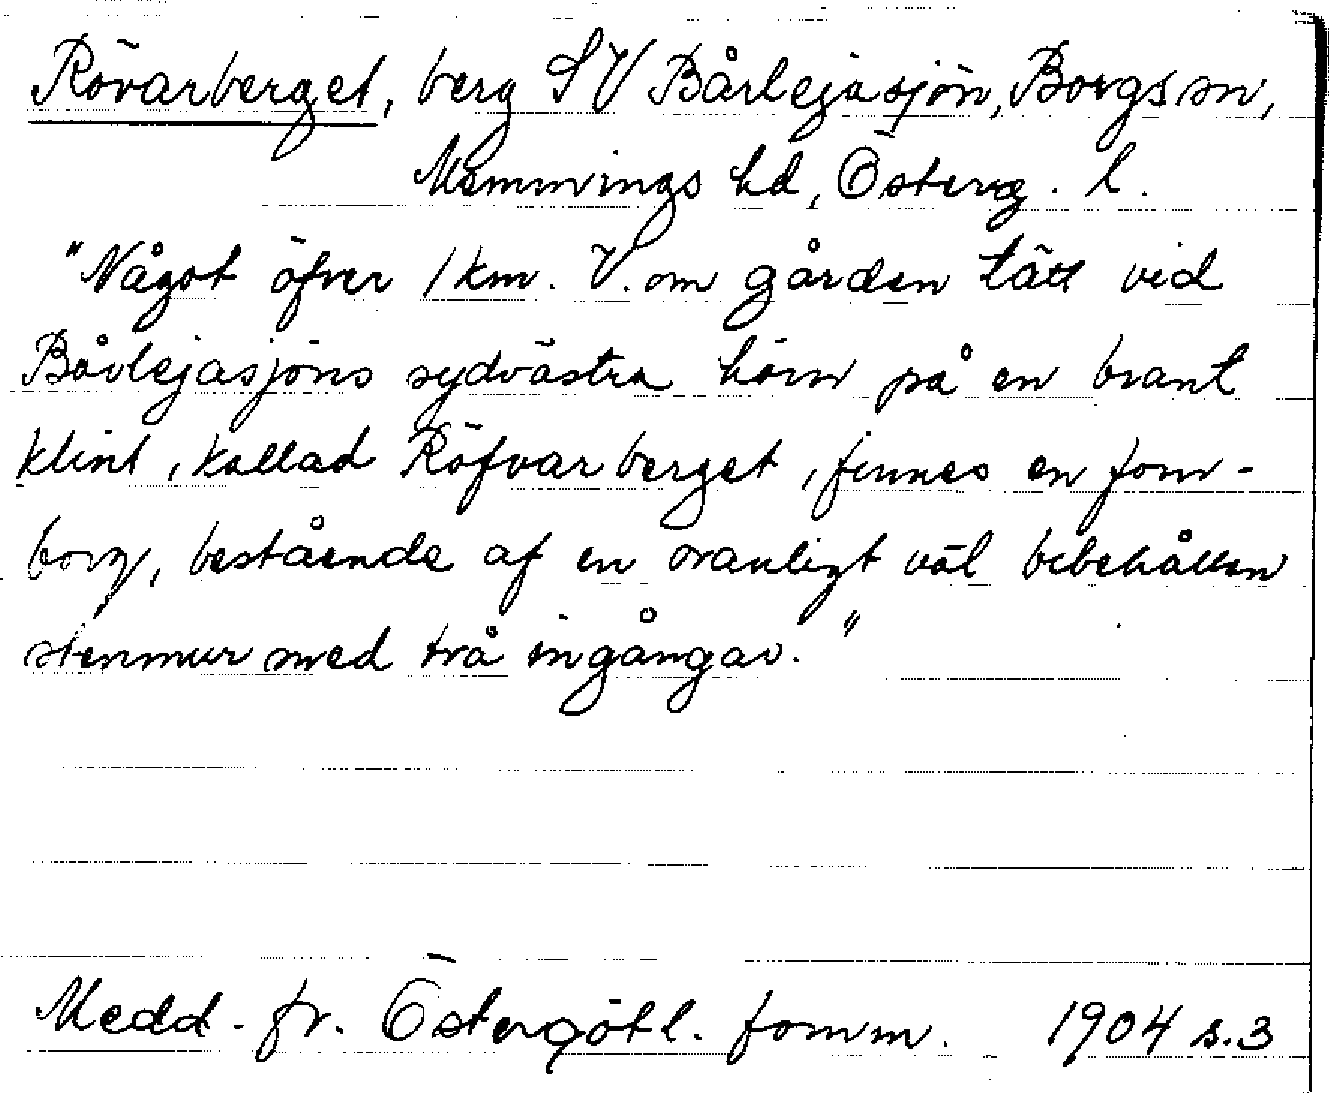 Rövarberget, berg SV Bårlejasjön, Borgs sn,
Memmings hd, Österg. l.
"Något öfver 1 km. V. om gården tätt vid
Bårlejasjöns sydvästra hörn på en brant
klint, kallad Röfvarberget, finnes en forn-
borg, bestående af en ovanligt väl bibehållen
stenmur med två ingångar."
Medd. fr. Östergötl. fornm. 1904 s. 3